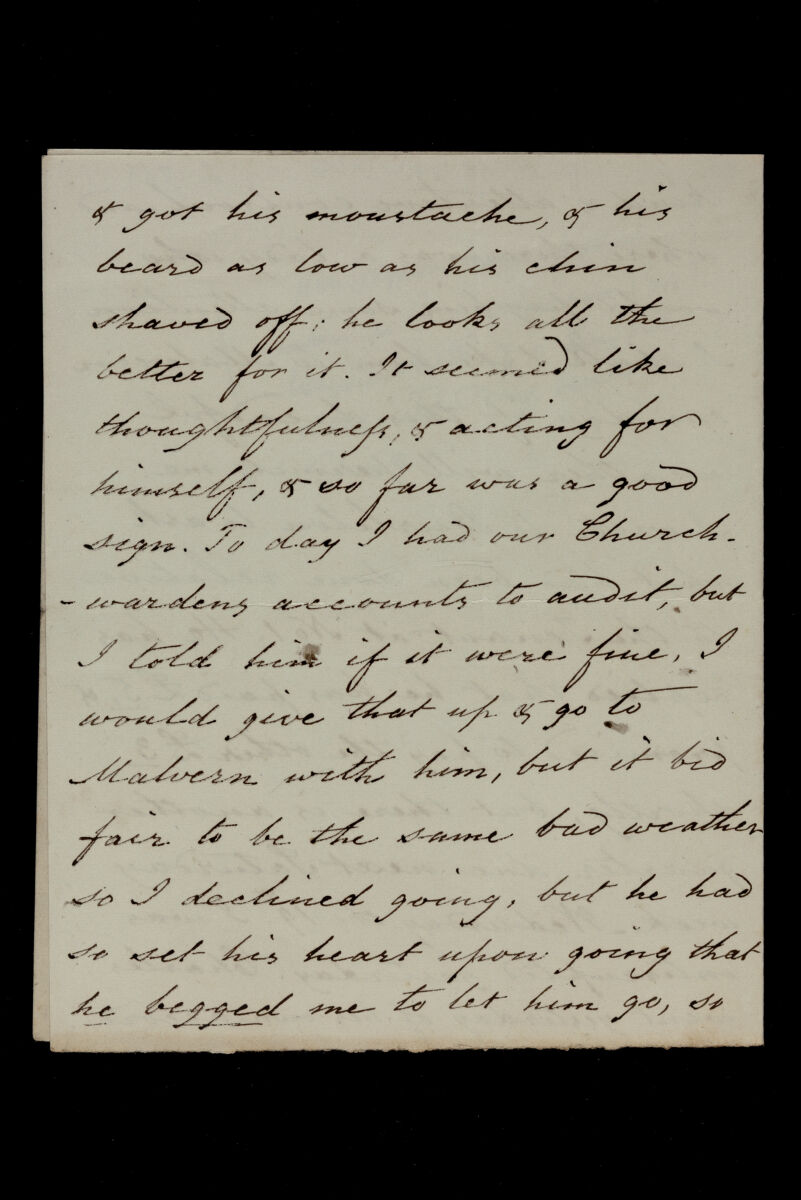 & got his moustache, & his
beard as low as his chin
shaved off; he looks all the
better for it. It seemed like
thoughtfulness, & acting for
himself, & so far was a good
sign. To day I had our Church-
-wardens accounts to audit, but
I told him if it were fine, I
would give that up & go to
Malvern with him, but it bid
fair to be the same bad weather
so I declined going, but he had
so set his heart upon going that
he begged me to let him go, so